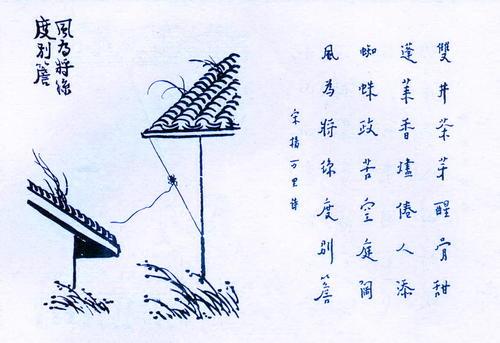 雙井茶芽醒骨甜
蓬萊香燼倦人添
蜘蛛政苦空庭闊
風為將絲度別簷
宋楊万里詩
風為將絲
度別簷